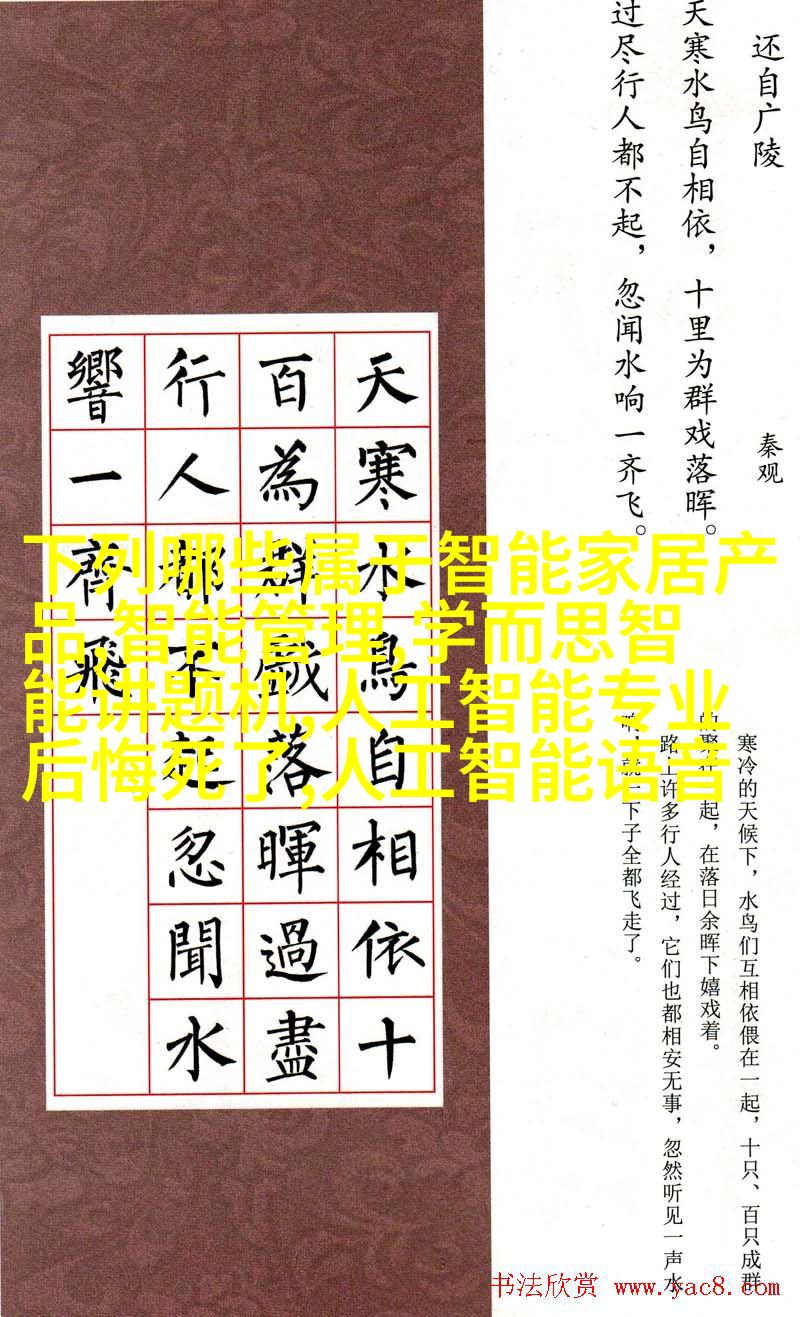 还自广陵
秦观
天寒水鸟自相依，十里为群戏落晖。
过尽行人都不起，忽闻水响一齐飞。
天寒水鳥自相依十
百為群戲落暉過盡
行人都不起忽聞水
響一齊飛
下列哪些属于智能家居产
品,智能管理,学而思智
能讲题机,人工智能专业
后悔死了,人工智能语音
寒冷的天候下，水鸟们互相依偎在一起，十只、百只成群
的聚在一起，在落日余晖下嬉戏着。
路上许多行人经过，它们也都相安无事，忽然听见一声水
响，就一下子全都飞走了。
书法欣赏 www.yac8.com